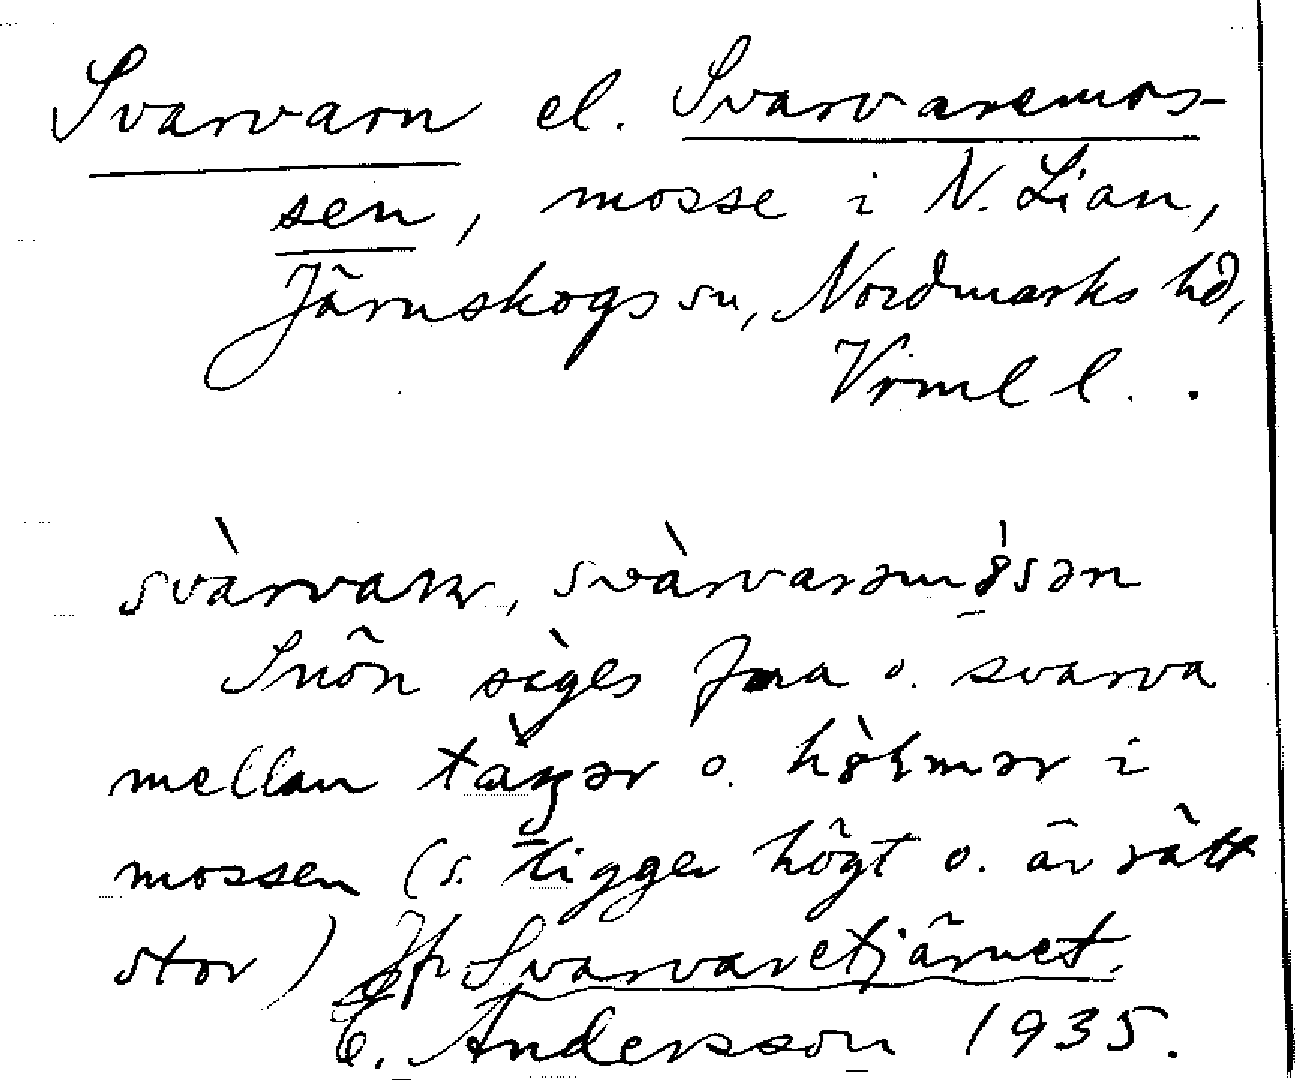 Svarvarn el. Svarvaremos-
sen, mosse i N. Lian,
Järnskogs sn, Nordmarks hd,
Vrml l. .
svàrvaɳ, svàrvarəmȯsən
Snön säges fara o. svarva
mellan tàgər o. hòɫmər i
mossen (s. ligger högt o. är rätt
stor) Jfr Svarvaretjärnet.
E. Andersson 1935.